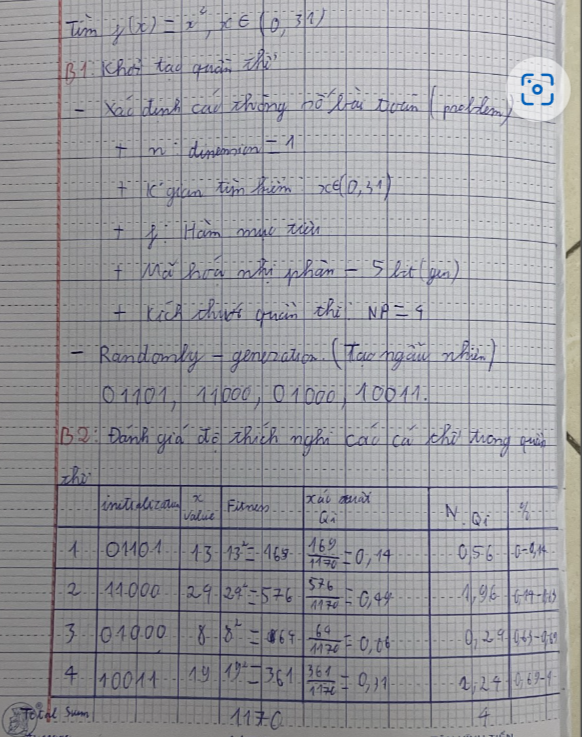 Tìm f(x) = x², x ∈ (0, 31)
B1: Khởi tạo quần thể
- Xác định các thông số bài toán (problem)
+ n: dimension = 1
+ K gian tìm kiếm x∈(0,31)
+ f: Hàm mục tiêu
+ Mã hoá nhị phân - 5 bit (gen)
+ Kích thước quần thể: NP = 4
- Randomly - generation. (Tạo ngẫu nhiên)
01101, 11000, 01000, 10011.
B2: Đánh giá độ thích nghi các cá thể trong quần
thể
x Value Fitness xác suất Qi N.Qi %
1 01101 13 13² = 169 169/1170 = 0,14 0,56 0-0,14
2 11000 24 24² = 576 576/1170 = 0,49 1,96 0,14-0,63
3 01000 8 8² = 64 64/1170 = 0,06 0,24 0,63-0,69
4 10011 19 19² = 361 361/1170 = 0,31 1,24 0,69-1
Total sum 1170 4